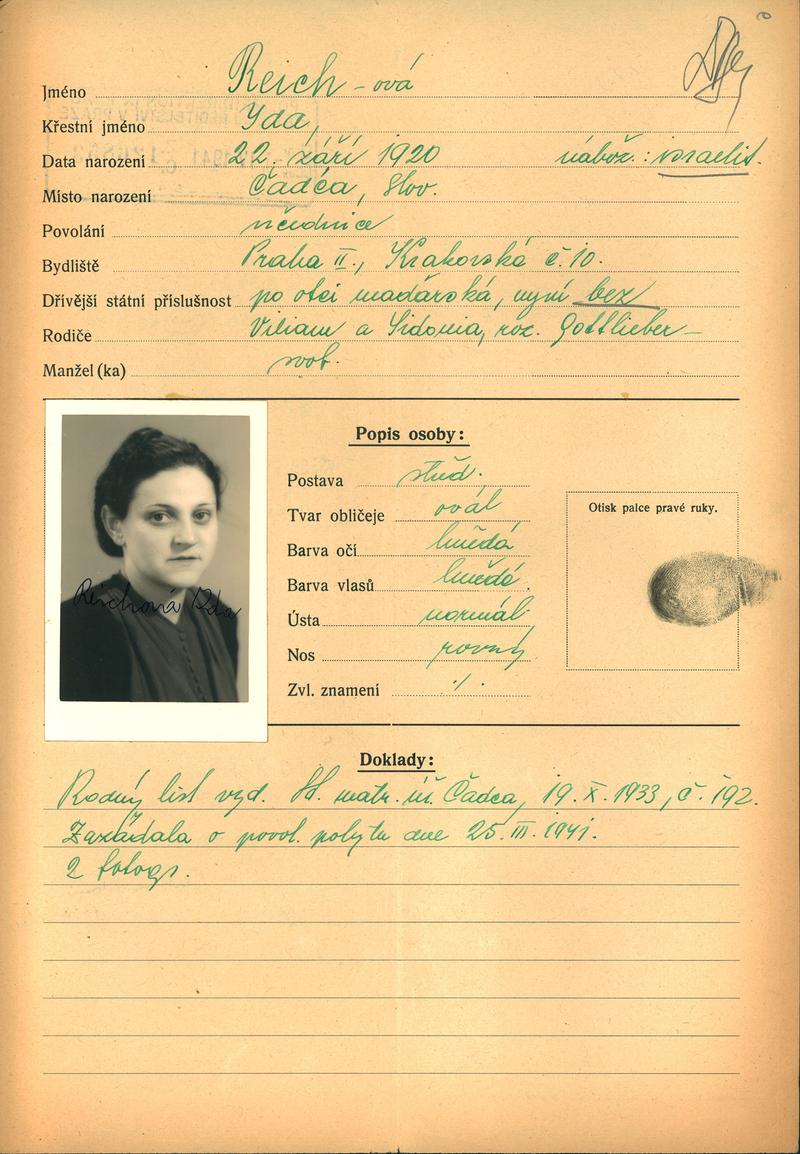 Jméno Reich-ová
Křestní jméno Ida,
Data narození 22. září 1920 nábož.: israelit.
Místo narození Čadca, Slov.
Povolání úřednice
Bydliště Praha II., Krakovská č. 10.
Dřívější státní příslušnost po otci maďarská, nyní bez
Rodiče Viliam a Sidonia, roz. Gottlieber-
Manžel (ka) svob.
Popis osoby:
Postava střed.
Tvar obličeje ovál
Barva očí hnědá
Barva vlasů hnědé
Ústa normál
Nos rovný
Zvl. znamení ./.
Otisk palce pravé ruky.
Reichová Ida
Doklady:
Rodný list vyd. St. matr. úř. Čadca, 19. X. 1933, č. 192.
Zažádala o povol. pobytu dne 25. III. 1941.
2 fotogr.